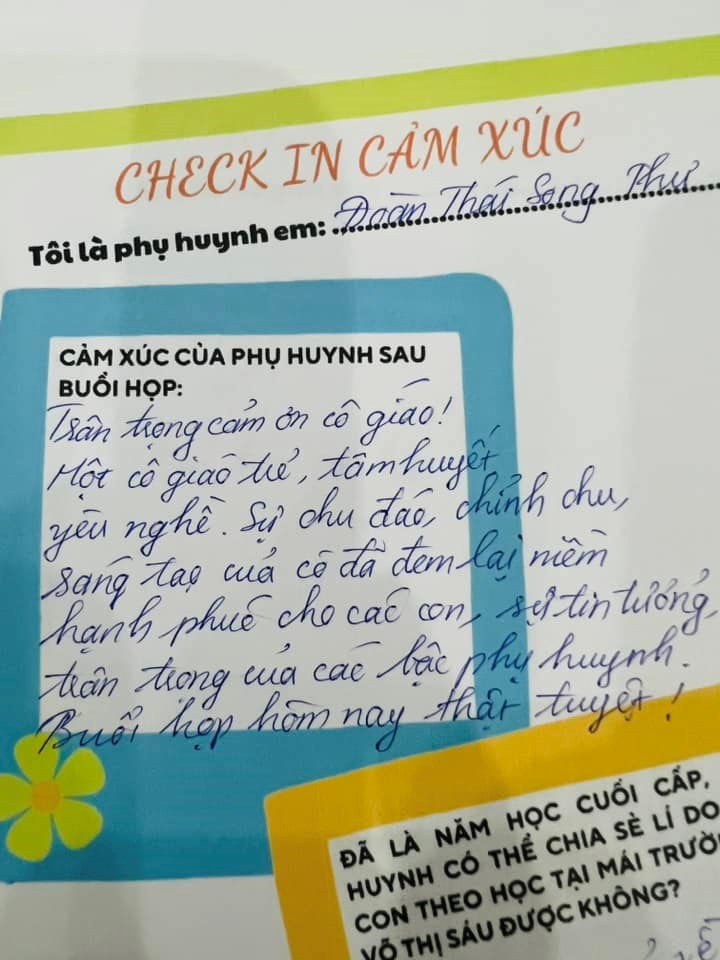 CHECK IN CẢM XÚC
Tôi là phụ huynh em: Đoàn Thái Song Thư
CẢM XÚC CỦA PHỤ HUYNH SAU
BUỔI HỌP:
Trân trọng cảm ơn cô giáo!
Một cô giáo trẻ, tâm huyết
yêu nghề. Sự chu đáo, chỉnh chu,
sáng tạo của cô đã đem lại niềm
hạnh phúc cho các con, sự tin tưởng,
trân trọng của các bậc phụ huynh.
Buổi họp hôm nay thật tuyệt!
ĐÃ LÀ NĂM HỌC CUỐI CẤP,
HUYNH CÓ THỂ CHIA SẺ LÍ DO
CON THEO HỌC TẠI MÁI TRƯỜ
VÕ THỊ SÁU ĐƯỢC KHÔNG?